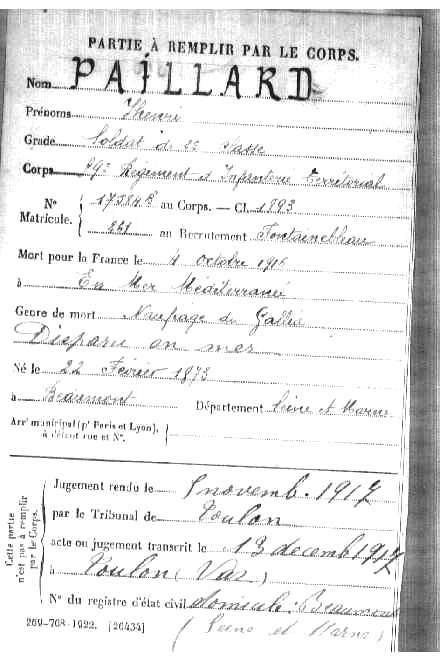 PARTIE À REMPLIR PAR LE CORPS.
Nom PAILLARD
Prénoms Henri
Grade Soldat de 2e classe
Corps 29e Régiment d'Infanterie Territorial
N° Matricule. { au Corps. — Cl. 1893
au Recrutement Fontainebleau
Mort pour la France le 4 octobre 1916
à En Mer Méditerranée
Genre de mort Naufrage du Gallia
Disparu en mer
Né le 22 Février 1873
à Beaumont Département Seine et Marne
Arrt municipal (pr Paris et Lyon), à défaut rue et N°. {
Cette partie n'est pas à remplir par le Corps.
Jugement rendu le novemb. 1917
par le Tribunal de Toulon
acte ou jugement transcrit le 13 decemb 1917
à Toulon (Var)
N° du registre d'état civil domicile: Beaumont
(Seine et Marne)
269-708-1922. [26434]